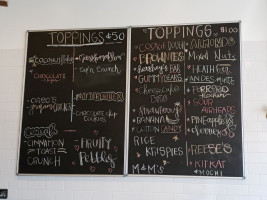 TOPPINGS $.50
COCONUT FLAKES
CHOCOLATE
Corn Crunch
OREO'S
GRAHAM CRACKERS
CHOCOLATE chip
Cereals
CINNAMON
TOAST
CRUNCH
FRUITY
Pebbles
TOPPINGS $1.00
COOKIE DOUGH
BROWNIES
Hershey's BAR
GUMMY BEARS
Cheesecake
Strawberry
BANANA
COTTON CANDY
RICE
KRISPIES
M&M's
ALMONDS
Mixed Nuts
HEATH
ANDES MINTS
FERRERO
ROCHER
SOUR
AIRHEADS
PINEAPPLE
REESE'S
KITKAT
MOCHI